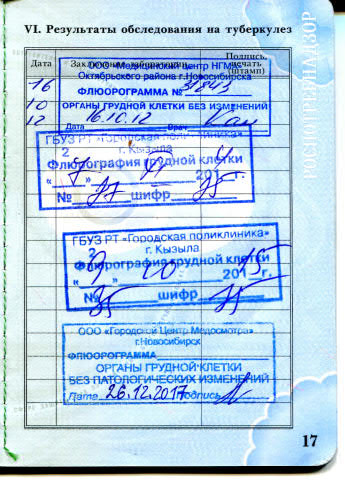 VI. Результаты обследования на туберкулез
Дата
Заключение
Подпись, печать (штамп)
РОСПОТРЕБНАДЗОР
16
10
12
ООО «Медицинский центр НГМА»
Октябрьского района г.Новосибирска
ФЛЮОРОГРАММА №
ОРГАНЫ ГРУДНОЙ КЛЕТКИ БЕЗ ИЗМЕНЕНИЙ
Дата 16.10.12 Врач
ГБУЗ РТ «Городская поликлиника»
г. Кызыла
Флюорография грудной клетки
201 г.
№ шифр
ГБУЗ РТ «Городская поликлиника»
г. Кызыла
Флюорография грудной клетки
201 г.
№ шифр
ООО «Городской Центр Медосмотра»
г.Новосибирск
ФЛЮОРОГРАММА
ОРГАНЫ ГРУДНОЙ КЛЕТКИ
БЕЗ ПАТОЛОГИЧЕСКИХ ИЗМЕНЕНИЙ
Дата 26.12.2017 Подпись
17